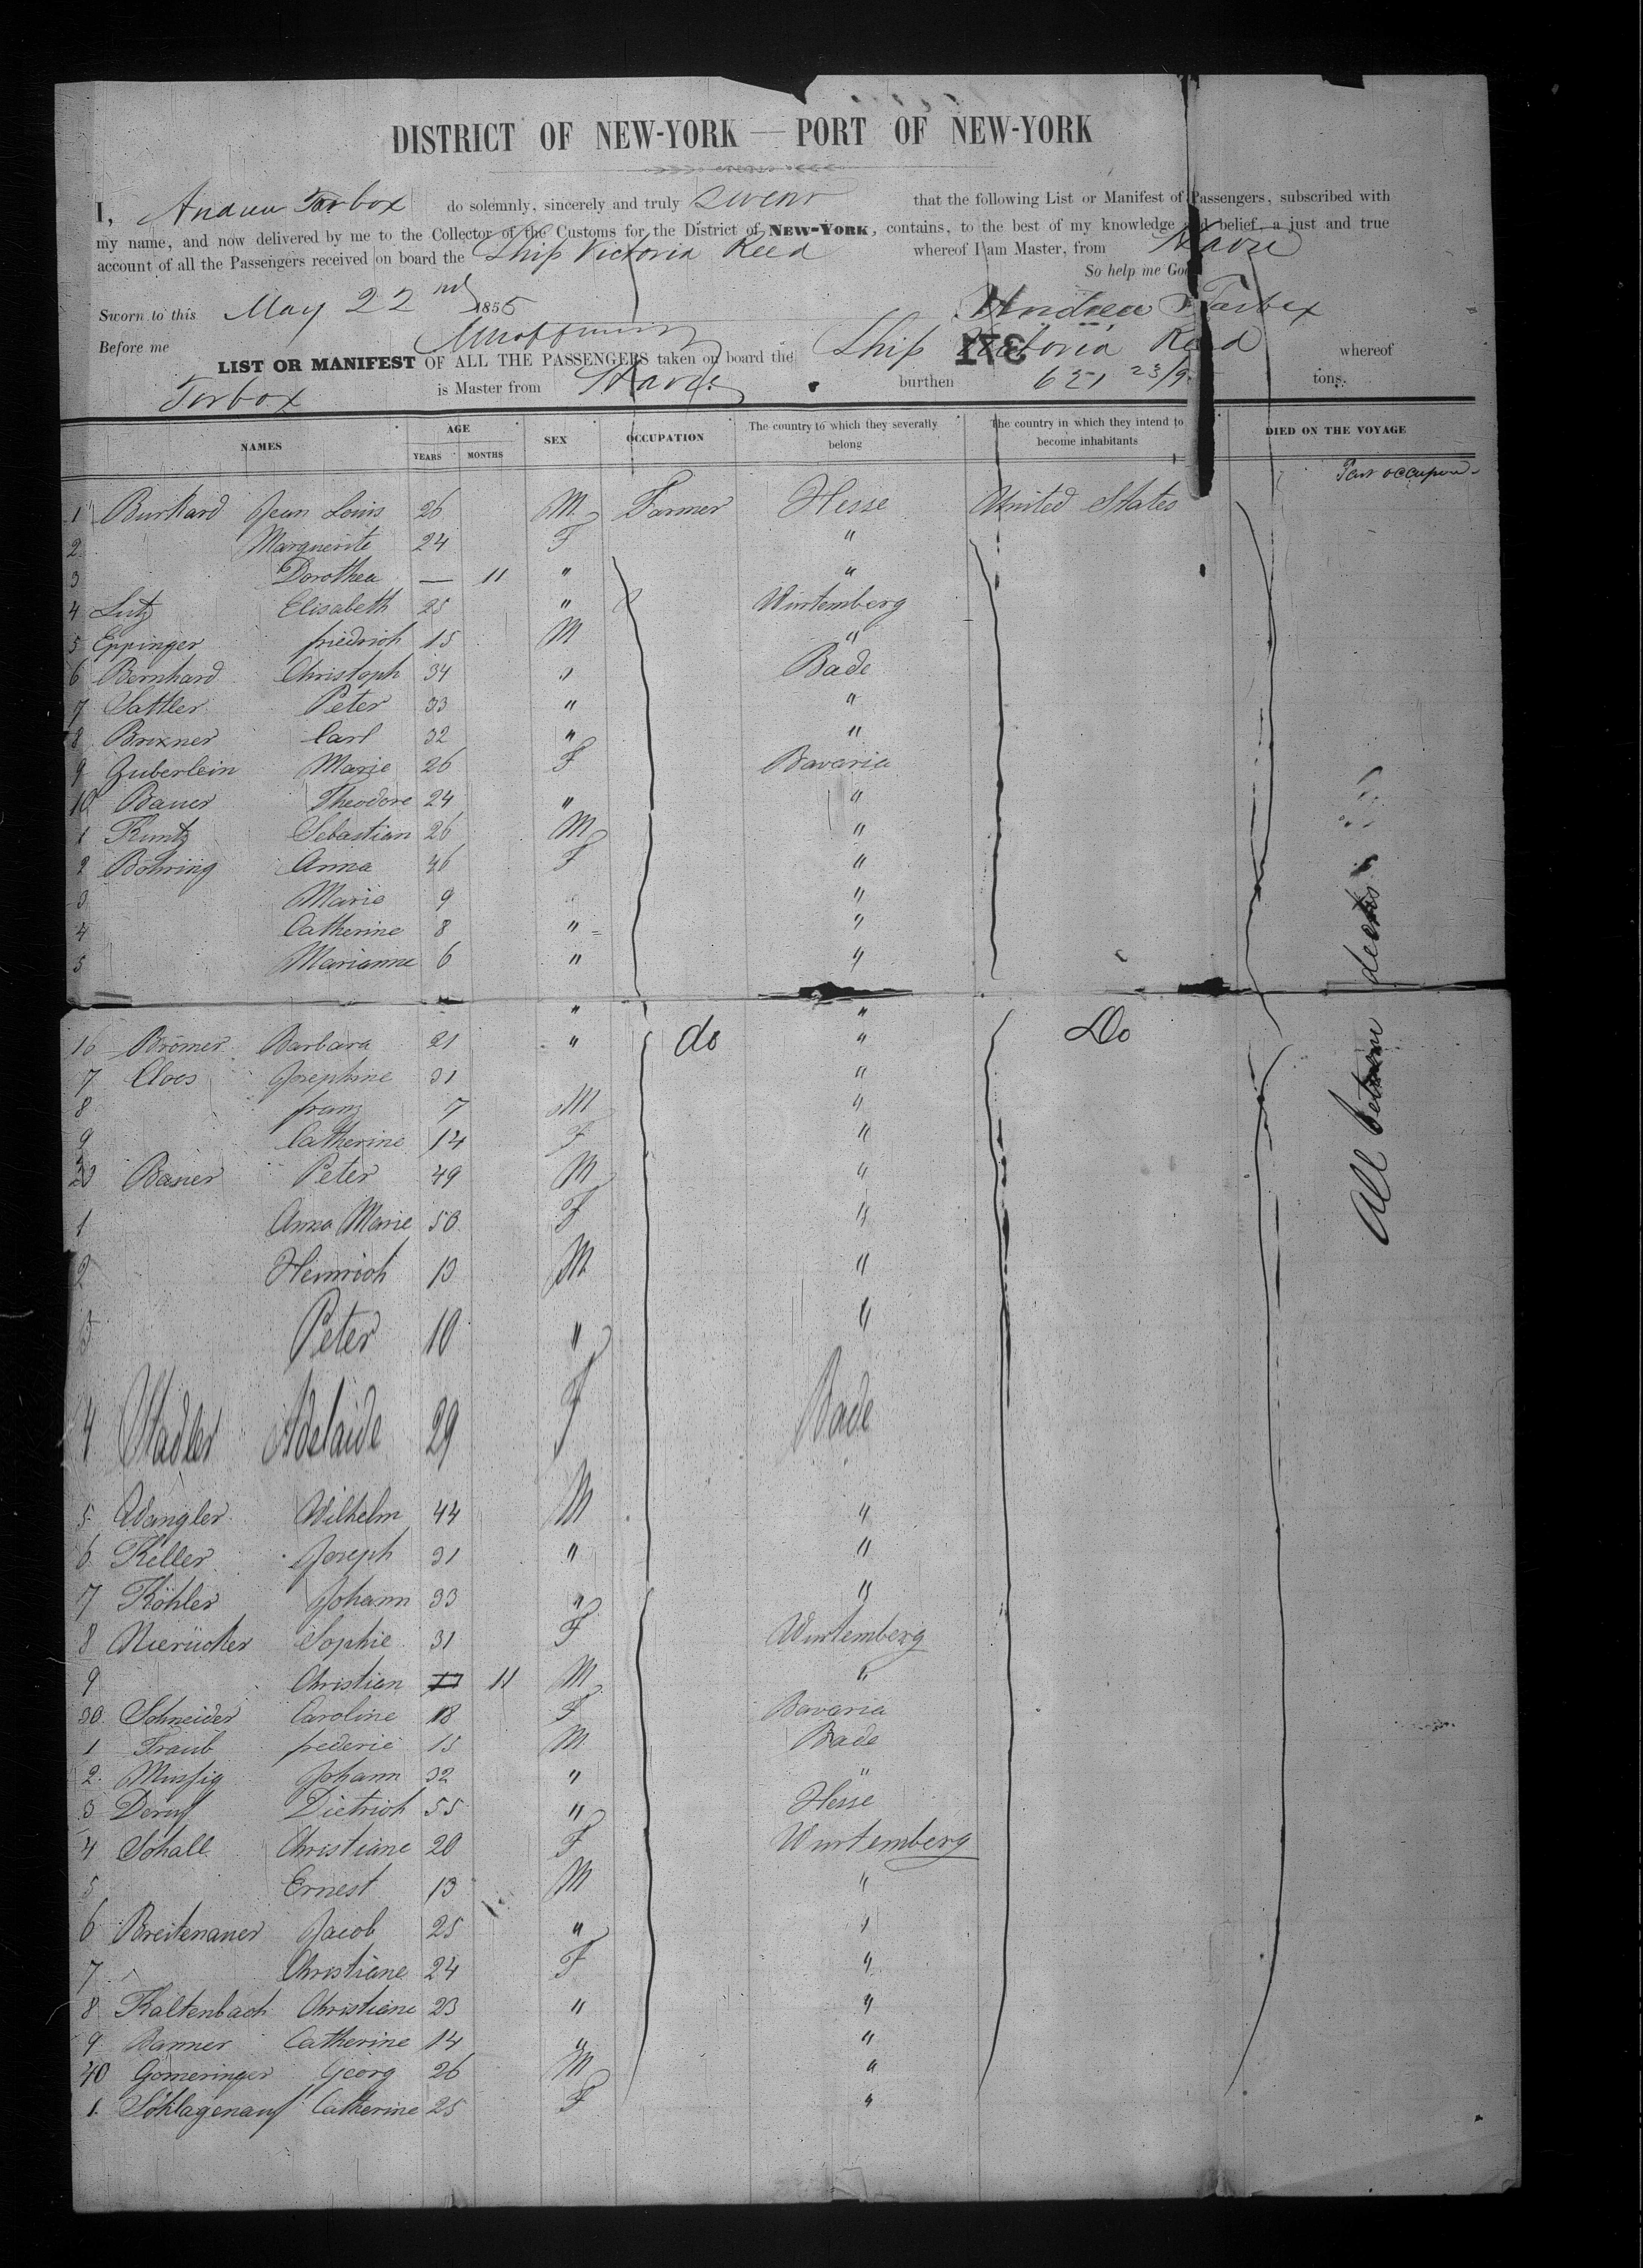 DISTRICT OF NEW-YORK — PORT OF NEW-YORK
I, Andrew Tarbox do solemnly, sincerely and truly swear that the following List or Manifest of Passengers, subscribed with
my name, and now delivered by me to the Collector of the Customs for the District of NEW-YORK, contains, to the best of my knowledge and belief, a just and true
account of all the Passengers received on board the Ship Victoria Reed whereof I am Master, from Havre
So help me God
Sworn to this May 22nd 1855 Andrew Tarbox
Before me
LIST OR MANIFEST OF ALL THE PASSENGERS taken on board the Ship Victoria Reed whereof
Tarbox is Master from Havre burthen tons.
NAMES AGE YEARS MONTHS SEX OCCUPATION The country to which they severally belong The country in which they intend to become inhabitants DIED ON THE VOYAGE
Part occupied
1 Burkard Jean Louis 26 M Farmer Hesse United States
2 Marguerite 24 F "
3 Dorothea — 11 " "
4 Lutz Elisabeth 25 " Wurtemberg
5 Eppinger friedrich 15 M "
6 Bernhard Christoph 34 " Bade
7 Sattler Peter 33 " "
8 Brixner Carl 32 " "
9 Zuberlein Marie 26 F Bavaria
10 Bauer Theodore 24 " "
1 Kuntz Sebastian 26 M "
2 Böhring Anna 46 F "
3 Marie 9 "
4 Catherine 8 " "
5 Marianne 6 " "
" "
16 Brömer Barbara 21 " do " Do
7 Cloes Josephine 31 "
8 franz 7 M "
9 Catherine 14 F "
20 Bauer Peter 49 M "
1 Anna Marie 50 F "
2 Heinrich 13 M "
3 Peter 10 " "
4 Stadler Adelaide 29 F Bade
5 Wangler Wilhelm 44 M "
6 Keller Joseph 31 " "
7 Köhler Johann 33 " "
8 Sophie 31 F Wurtemberg
9 Christian 11 M "
30 Schneider Caroline 18 F Bavaria
1 Traub frederic 15 M Bade
2 Johann 32 " "
3 Dietrich 55 " Hesse
4 Schall Christiane 20 F Wurtemberg
5 Ernest 13 M "
6 Breitenauer Jacob 25 " "
7 Christiane 24 F "
8 Kaltenbach Christiane 23 " "
9 Banner Catherine 14 " "
40 Gomeringer Georg 26 M "
1 Schlagenauf Catherine 25 F "
All between decks